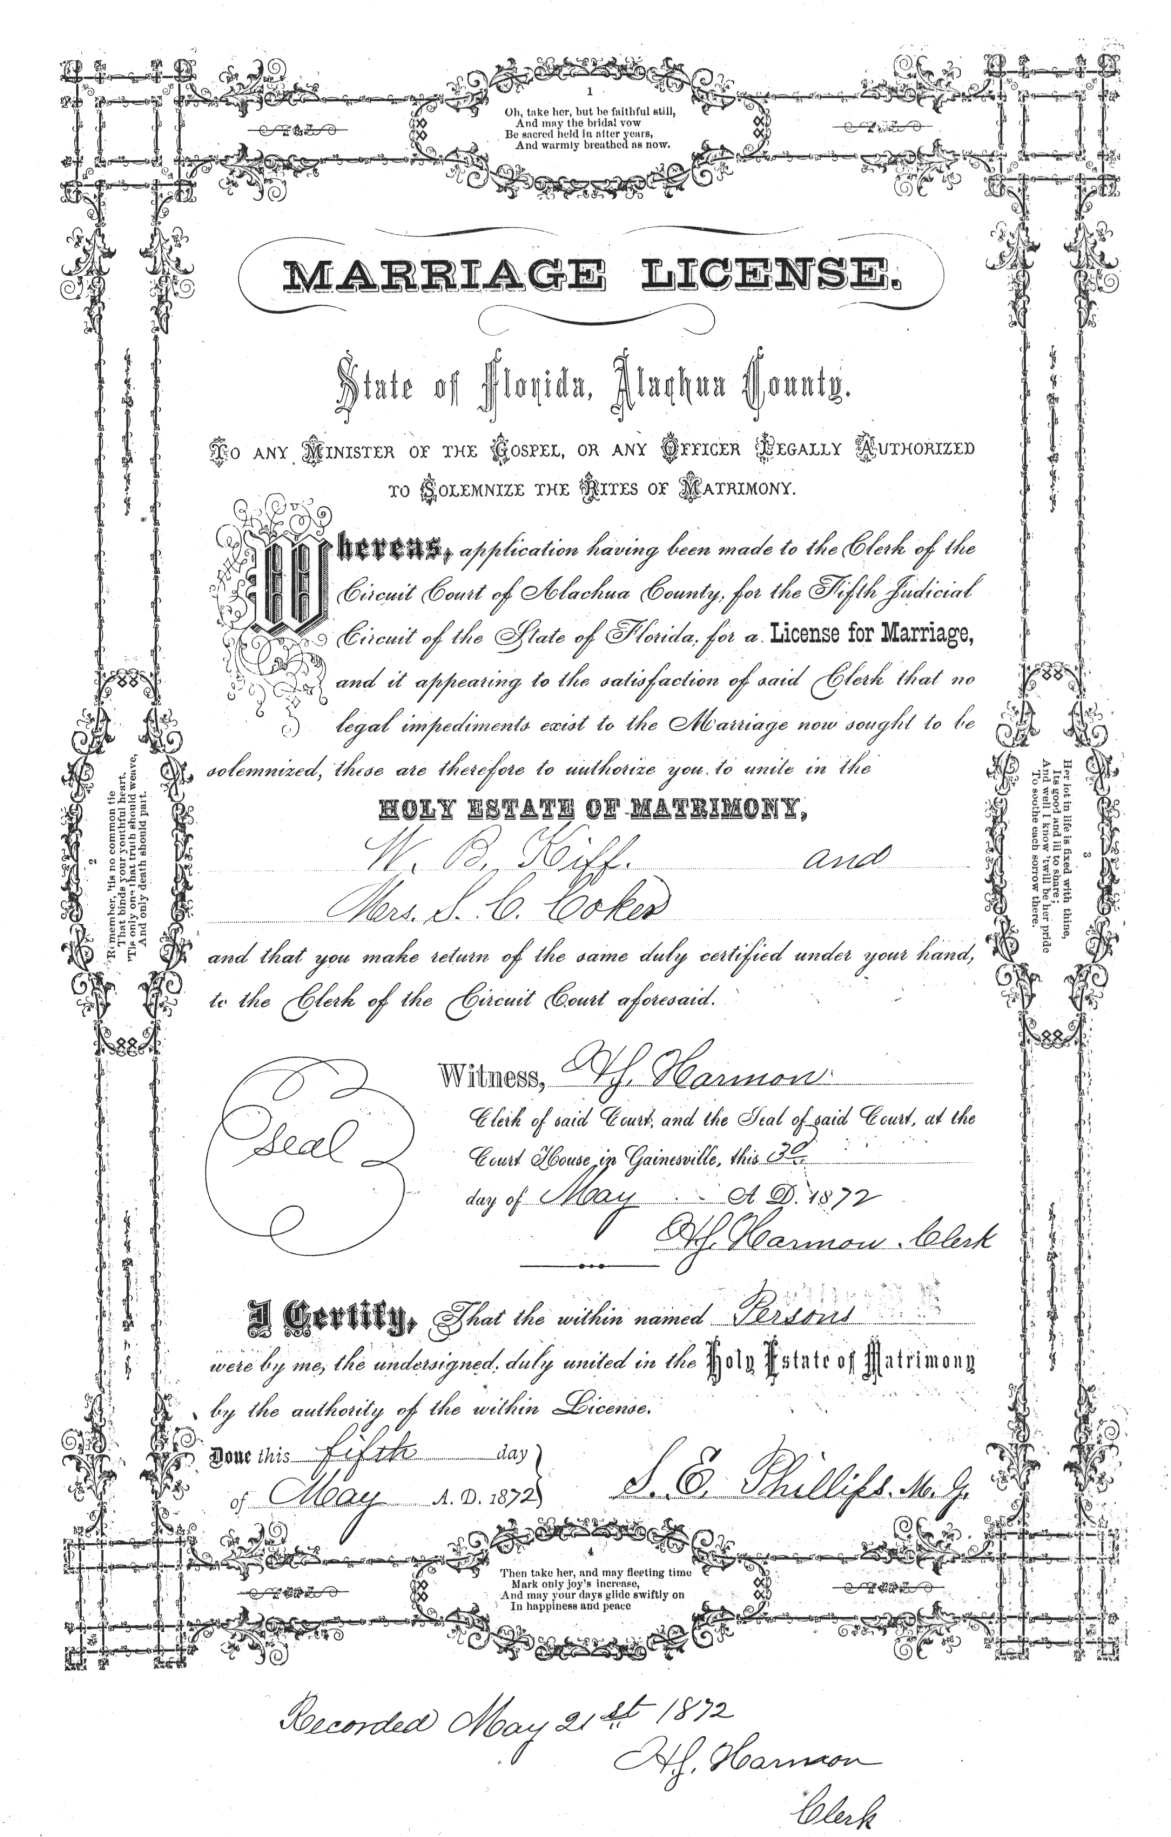 1
Oh, take her, but be faithful still,
And may the bridal vow
Be sacred held in after years,
And warmly breathed as now.
MARRIAGE LICENSE.
State of Florida, Alachua County.
To any Minister of the Gospel, or any Officer Legally Authorized
to Solemnize the Rites of Matrimony.
Whereas, application having been made to the Clerk of the
Circuit Court of Alachua County, for the Fifth Judicial
Circuit of the State of Florida, for a License for Marriage,
and it appearing to the satisfaction of said Clerk that no
legal impediments exist to the Marriage now sought to be
solemnized, these are therefore to authorize you to unite in the
HOLY ESTATE OF MATRIMONY,
W. B. Kiff. and
Mrs. S. C. Coker
and that you make return of the same duly certified under your hand,
to the Clerk of the Circuit Court aforesaid.
2
Remember, 'tis no common tie
That binds your youthful heart,
'Tis only one that truth should weave,
And only death should part.
3
Her lot in life is fixed with thine,
Its good and ill to share;
And well I know 'twill be her pride
To soothe each sorrow there.
Seal
Witness, H. J. Harmon
Clerk of said Court, and the Seal of said Court, at the
Court House in Gainesville, this 3d
day of May A. D. 1872
H. J. Harmon. Clerk
I Certify, That the within named Persons
were by me, the undersigned, duly united in the Holy Estate of Matrimony
by the authority of the within License.
Done this fifth day
of May A. D. 1872
S. E. Phillips. M. G.
4
Then take her, and may fleeting time
Mark only joy's increase,
And may your days glide swiftly on
In happiness and peace
Recorded May 21st 1872
H. J. Harmon
Clerk